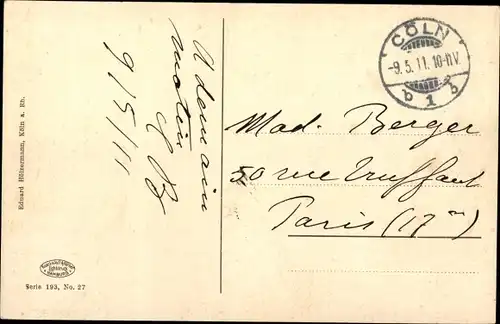 CÖLN
-9.5.11.10-11V.
b 1 b
A demain
matin
9/5/11
Mad. Berger
50 rue Truffaut
Paris (17e)
Eduard Hülsermann, Köln a. Rh.
Serie 193, No. 27